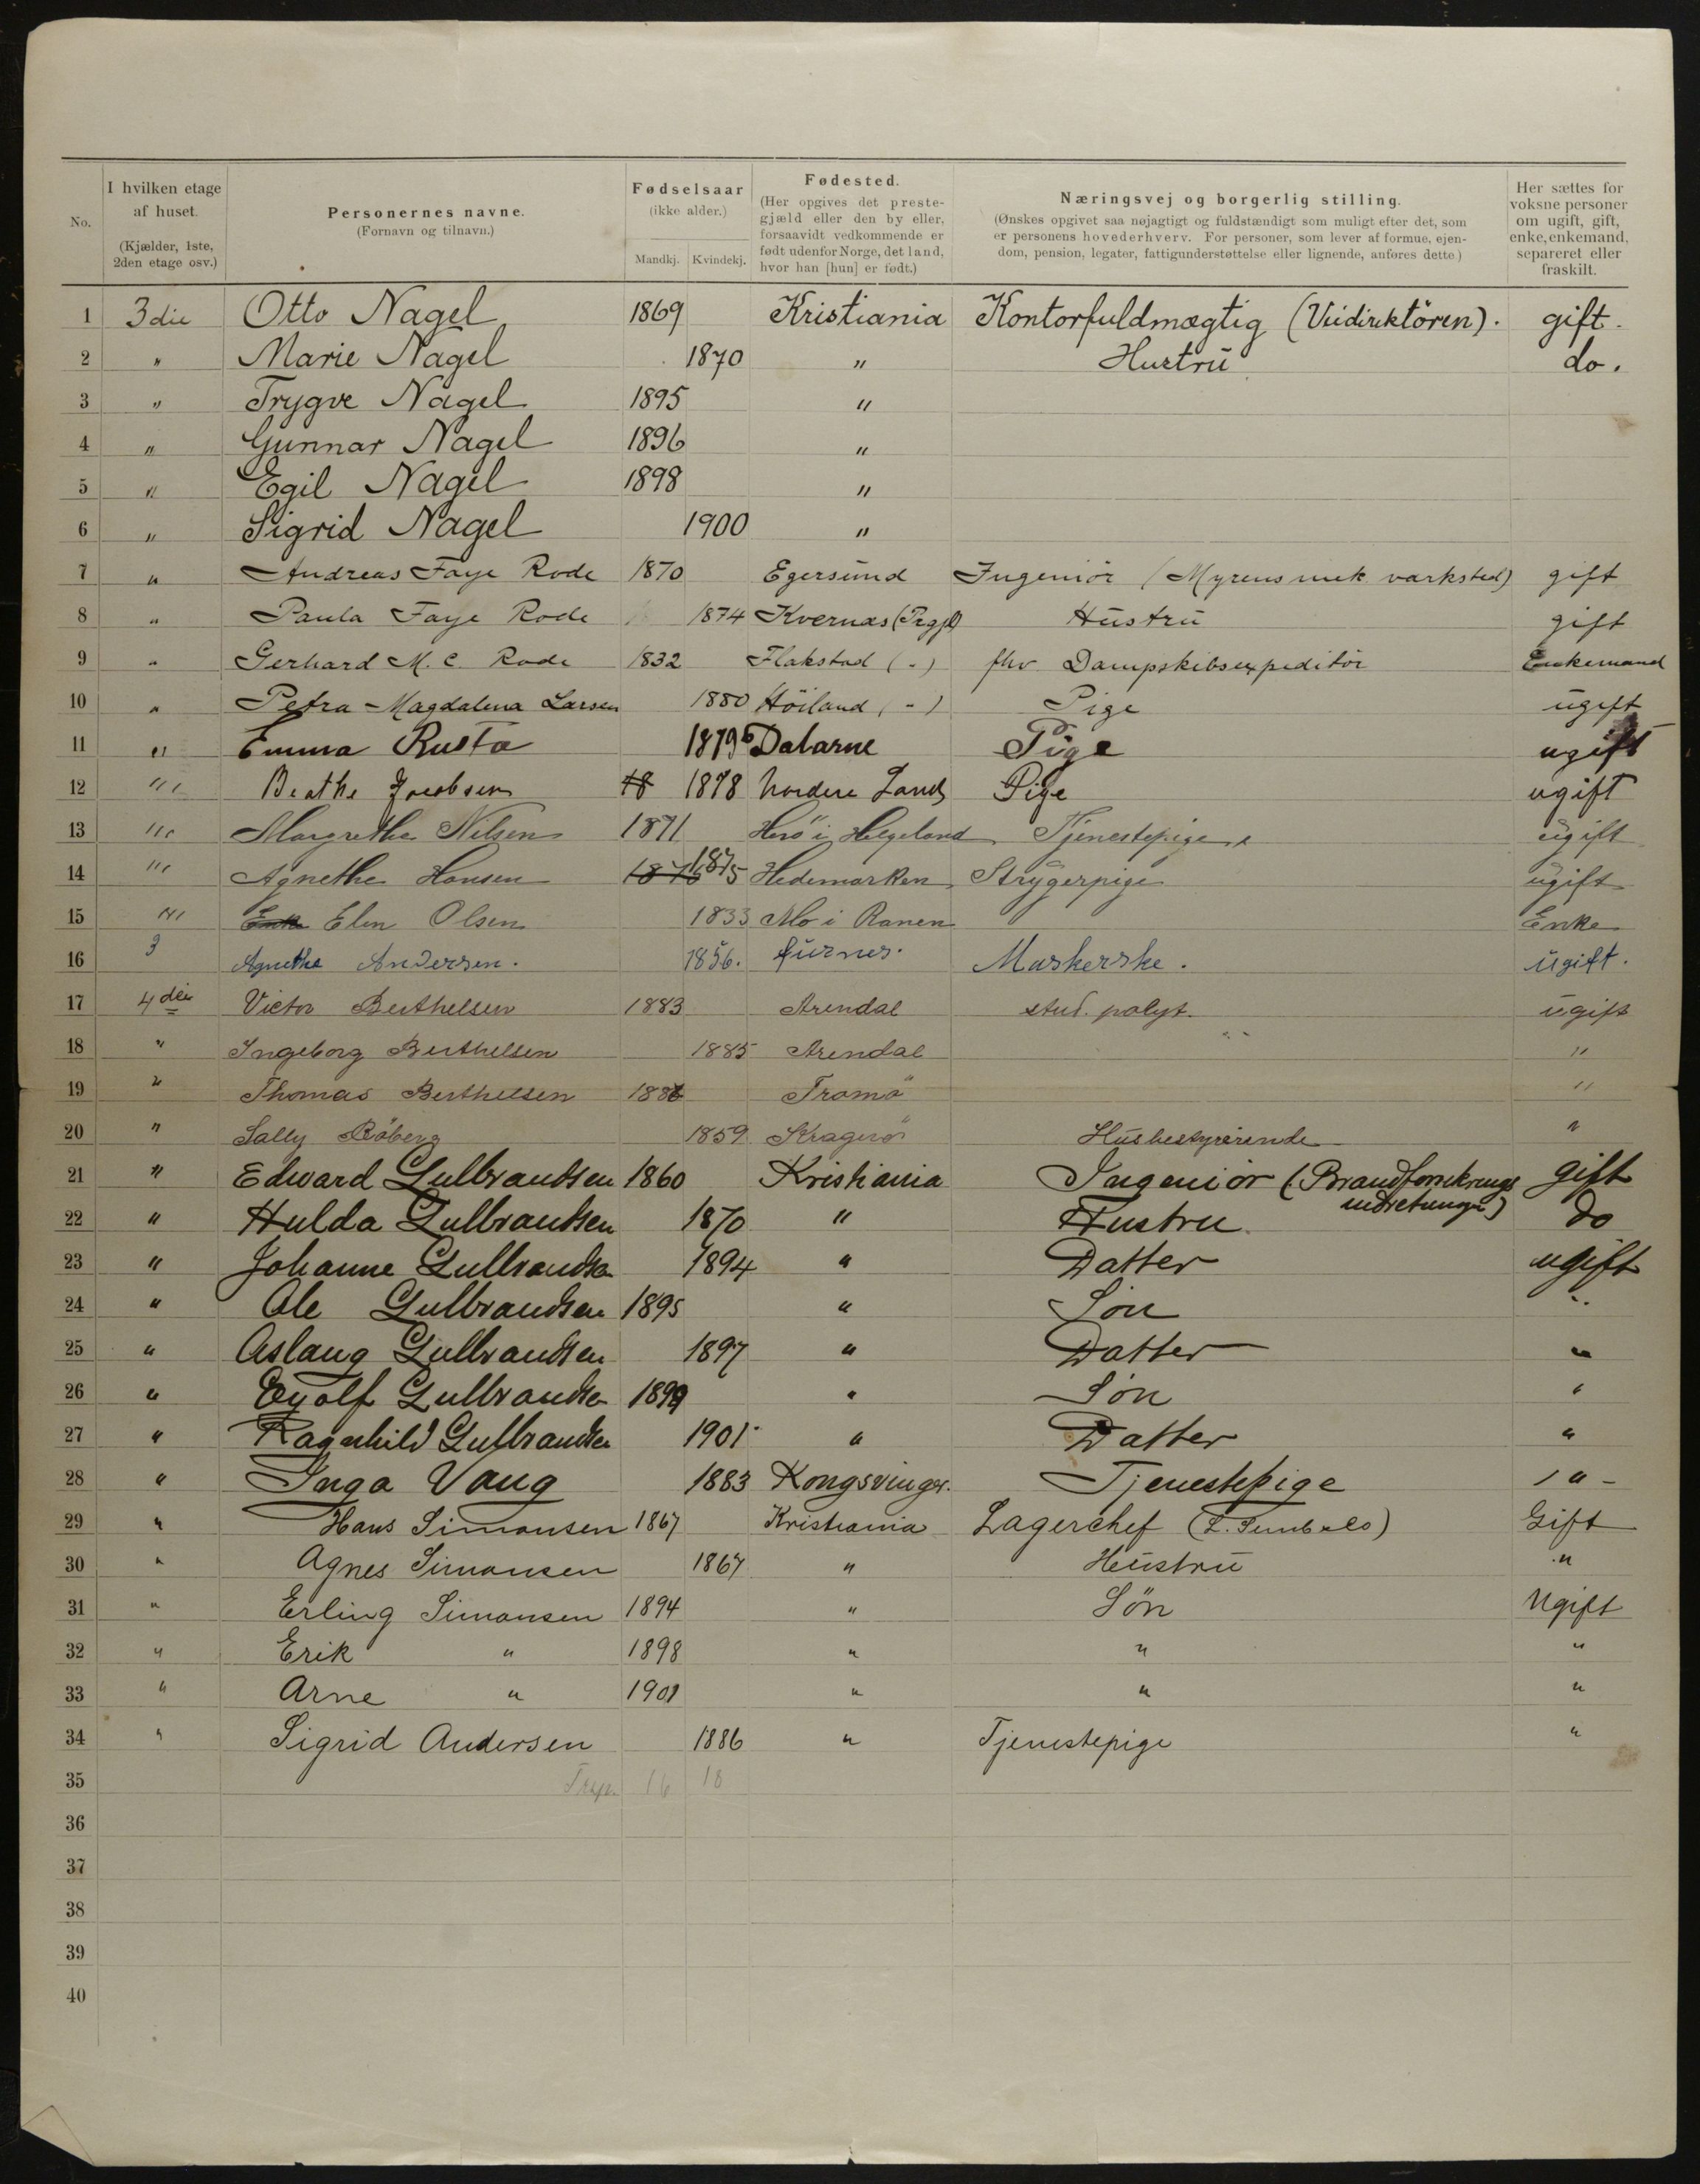 No.
I hvilken etage af huset.
(Kjælder, 1ste, 2den etage osv.)
Personernes navne.
(Fornavn og tilnavn.)
Fødselsaar
(ikke alder.)
Mandkj. Kvindekj.
Fødested.
(Her opgives det prestegjæld eller den by eller, forsaavidt vedkommende er født udenfor Norge, det land, hvor han [hun] er født.)
Næringsvej og borgerlig stilling.
(Ønskes opgivet saa nøjagtigt og fuldstændigt som muligt efter det, som er personens hovederhverv. For personer, som lever af formue, ejendom, pension, legater, fattigunderstøttelse eller lignende, anføres dette.)
Her sættes for voksne personer om ugift, gift, enke, enkemand, separeret eller fraskilt.
1 3die Otto Nagel 1869 Kristiania Kontorfuldmægtig (Veidirektören). gift.
2 " Marie Nagel 1870 " Hustru do.
3 " Trygve Nagel 1895 "
4 " Gunnar Nagel 1896 "
5 " Egil Nagel 1898 "
6 " Sigrid Nagel 1900 "
7 " Andreas Faye Rode 1870 Egersund Ingeniör (Myrens mek værksted) gift
8 " Paula Faye Rode 1874 Kvernæs (Prgjd) Hustru gift
9 " Gerhard M. C. Rode 1832 Flakstad ( - ) fhv Dampskibsexpeditör Enkemand
10 " Petra Magdalena Larsen 1880 Höiland ( - ) Pige ugift
11 " Emma Rusta 1879 Dalarne Pige ugift
12 " Beathe Jacobsen 18 1878 Nordere Land Pige ugift
13 " Margrethe Nilsen 1871 Herö i Helgeland Tjenestepige ugift
14 " Agnethe Hansen 1876 1875 Hedemarken Strygerpige ugift
15 " Enke Elen Olsen 1833 Mo i Ranen Enke
16 3 Agnethe Andersen. 1856. Furnes. Maskerske. ugift.
17 4die Victor Berthelsen 1883 Arendal stud. polyt. ugift
18 " Ingeborg Berthelsen 1885 Arendal "
19 " Thomas Berthelsen 1886 Tromö "
20 " Sally Böberg 1859 Kragerö Husbestyrerende "
21 " Edward Gulbrandsen 1860 Kristiania Ingeniör (Brandforsikrings gift
indretningen)
22 " Hulda Gulbrandsen 1870 " Hustru do
23 " Johanne Gulbrandsen 1894 " Datter ugift
24 " Ole Gulbrandsen 1895 " Sön "
25 " Aslaug Gulbrandsen 1897 " Datter "
26 " Eyolf Gulbrandsen 1899 " Sön "
27 " Ragnhild Gulbrandsen 1901 " Datter "
28 " Inga Vang 1883 Kongsvinger. Tjenestepige "
29 " Hans Simonsen 1867 Kristiania Lagerchef Gift
30 " Agnes Simonsen 1867 " Hustru "
31 " Erling Simonsen 1894 " Sön Ugift
32 " Erik " 1898 " " "
33 " Arne " 1901 " " "
34 " Sigrid Andersen 1886 " Tjenestepige "
35 16 18
36
37
38
39
40